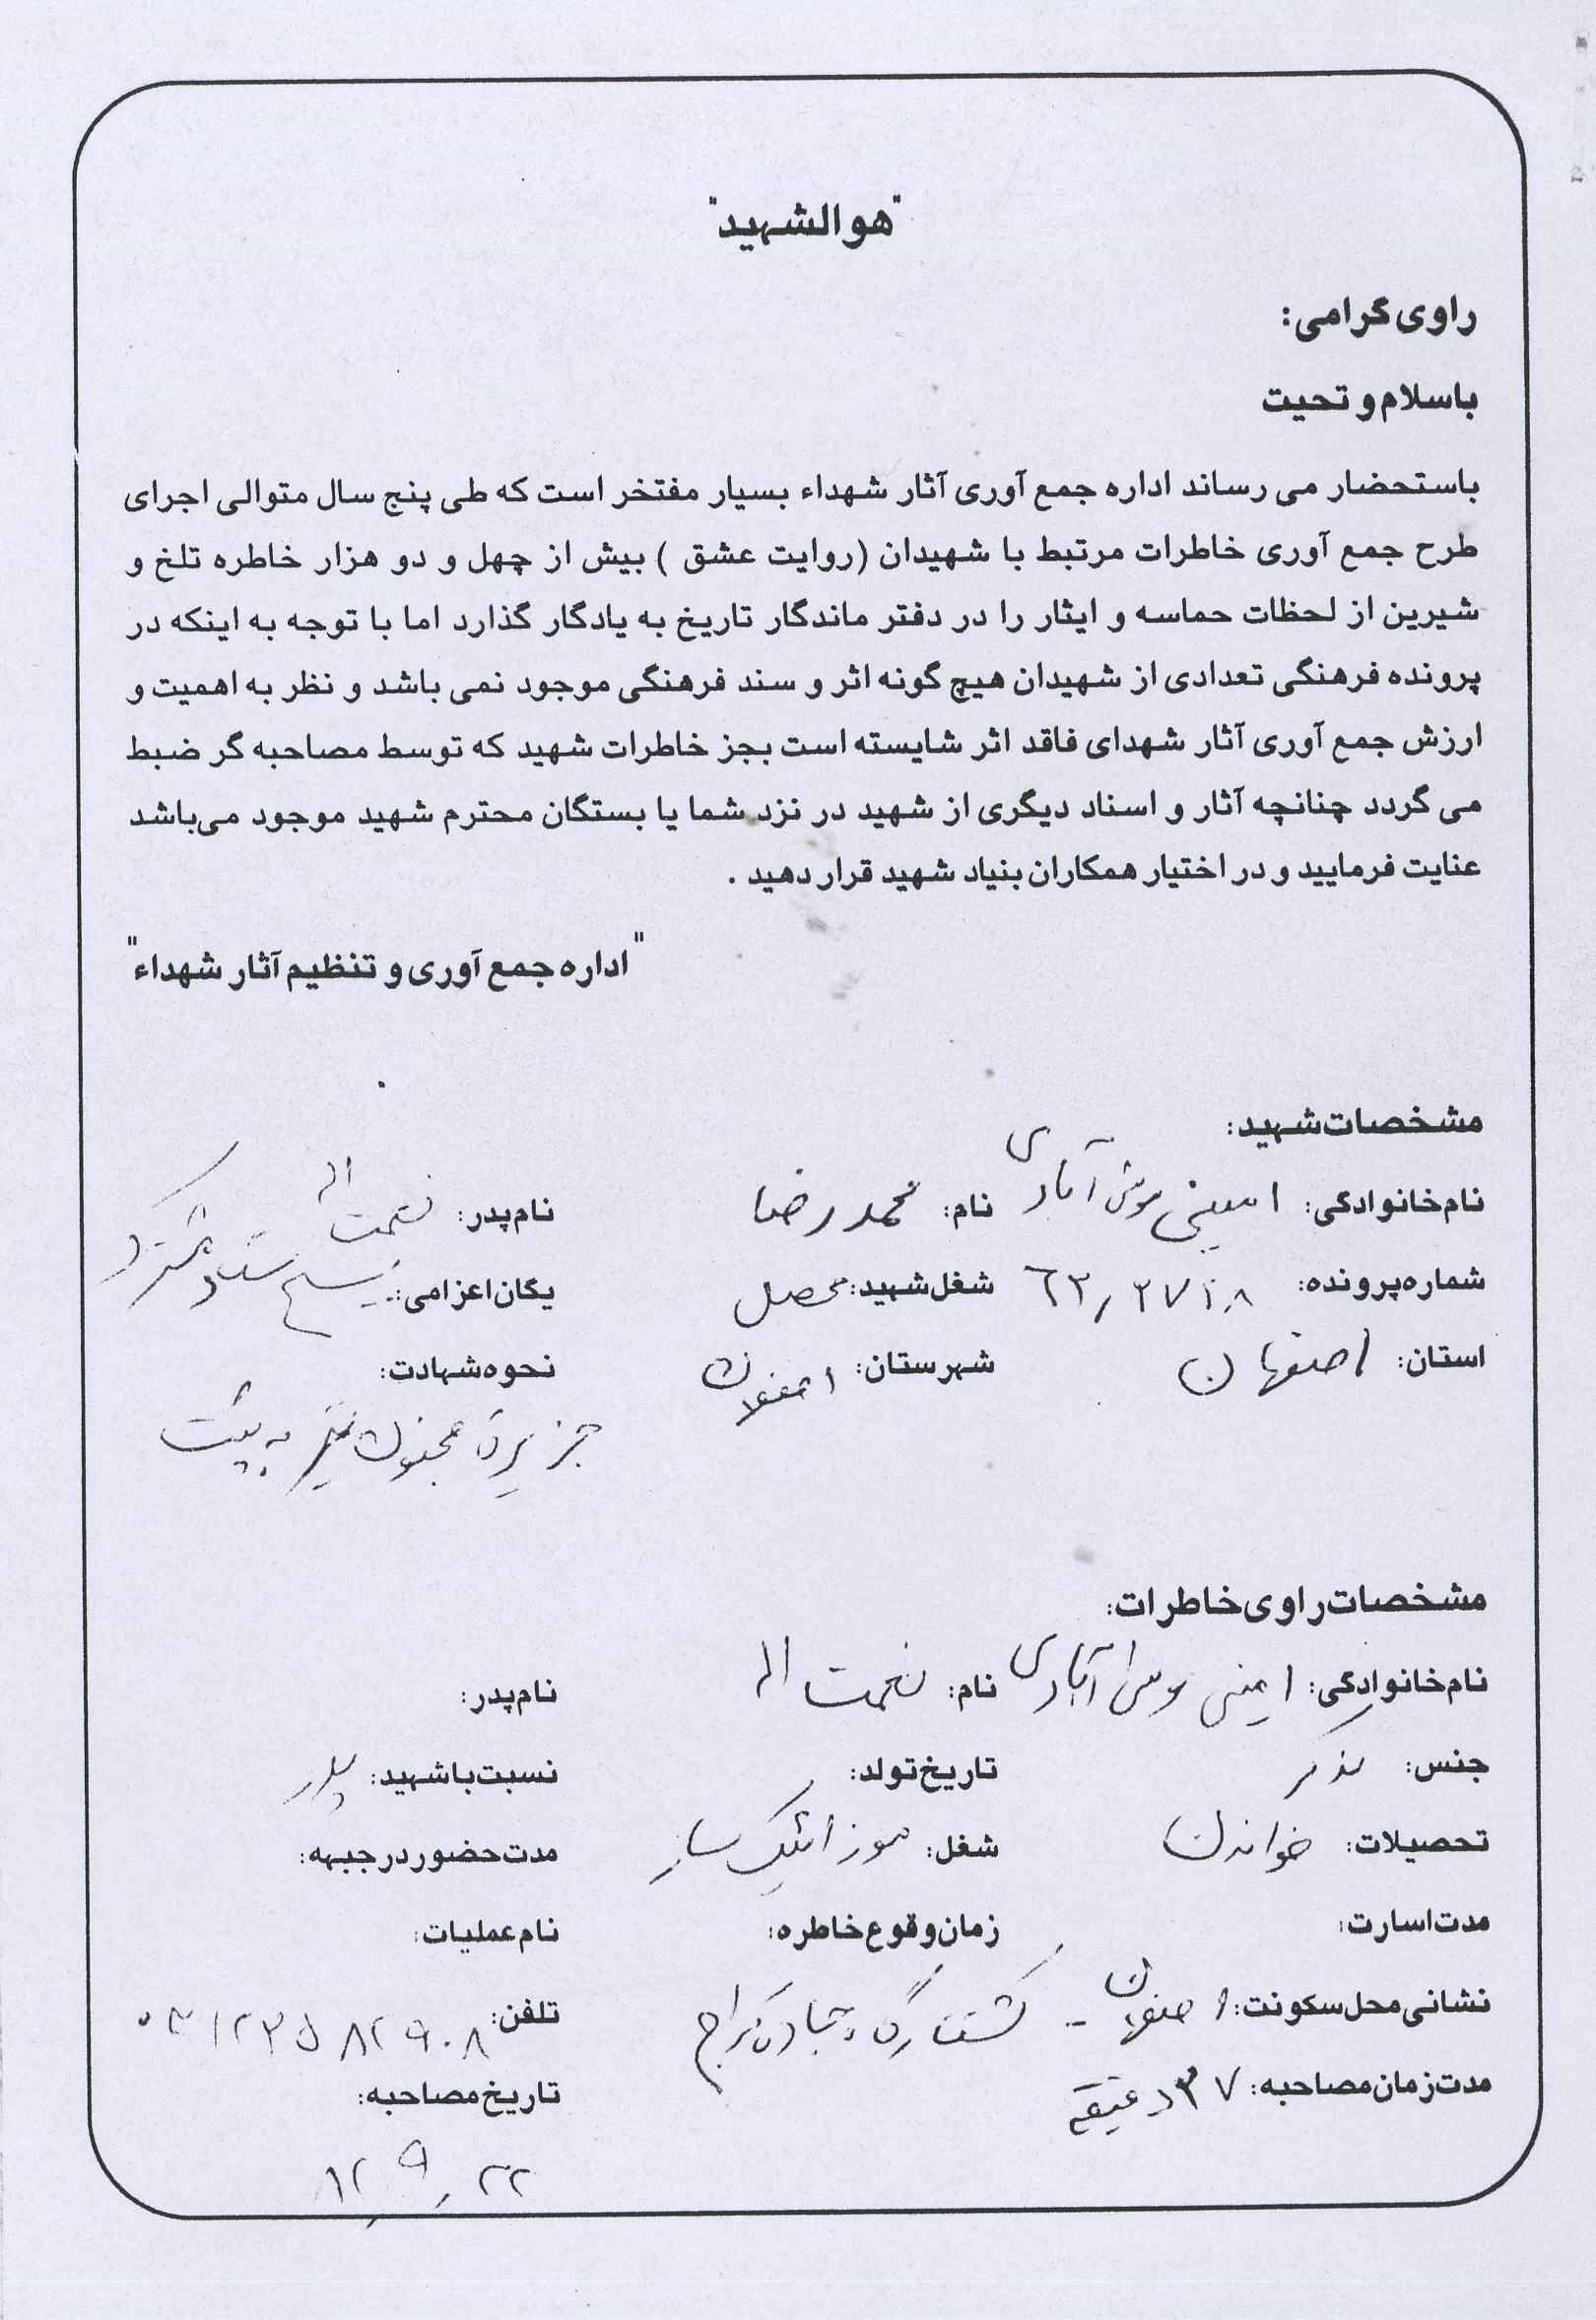 "هوالشهید"
راوی گرامی:
باسلام و تحیت
باستحضار می رساند اداره جمع آوری آثار شهداء بسیار مفتخر است که طی پنج سال متوالی اجرای
طرح جمع آوری خاطرات مرتبط با شهیدان (روایت عشق ) بیش از چهل و دو هزار خاطره تلخ و
شیرین از لحظات حماسه و ایثار را در دفتر ماندگار تاریخ به یادگار گذارد اما با توجه به اینکه در
پرونده فرهنگی تعدادی از شهیدان هیچ گونه اثر و سند فرهنگی موجود نمی باشد و نظر به اهمیت و
ارزش جمع آوری آثار شهدای فاقد اثر شایسته است بجز خاطرات شهید که توسط مصاحبه گر ضبط
می گردد چنانچه آثار و اسناد دیگری از شهید در نزد شما یا بستگان محترم شهید موجود می‌باشد
عنایت فرمایید و در اختیار همکاران بنیاد شهید قرار دهید .
"اداره جمع آوری و تنظیم آثار شهداء"
مشخصات شهید:
نام خانوادگی: امینی آبادی نام: محمد رضا نام پدر: نعمت اله
شماره پرونده: شغل شهید: محصل یگان اعزامی:
استان: اصفهان شهرستان: اصفهان نحوه شهادت:
جزیره مجنون تیر به پشت
مشخصات راوی خاطرات:
نام خانوادگی: امینی آبادی نام: نعمت اله نام پدر:
جنس: مذکر تاریخ تولد: نسبت با شهید: پدر
تحصیلات: خواندن شغل: موزائیک ساز مدت حضور در جبهه:
مدت اسارت: زمان وقوع خاطره: نام عملیات:
نشانی محل سکونت: اصفهان - تلفن: ۰۳۱۲۳۵۸۲۹۰۸
مدت زمان مصاحبه: ۳۷ دقیقه تاریخ مصاحبه:
۸۲/۹/۲۲